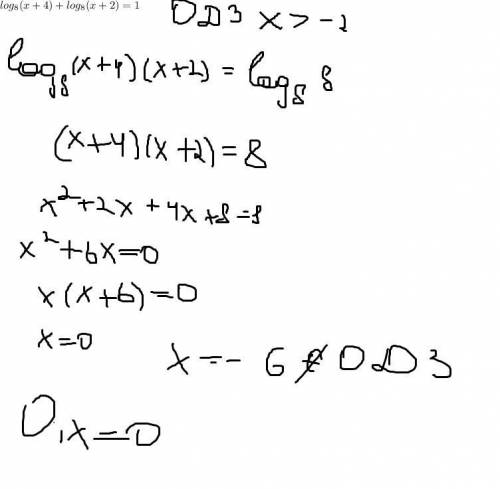 log₈(x + 4) + log₈(x + 2) = 1
ОДЗ x > -2
log₈(x+4)(x+2) = log₈ 8
(x+4)(x+2)=8
x²+2x+4x+8=8
x²+6x=0
x(x+6)=0
x=0
x=-6 ∉ ОДЗ
О, x=0